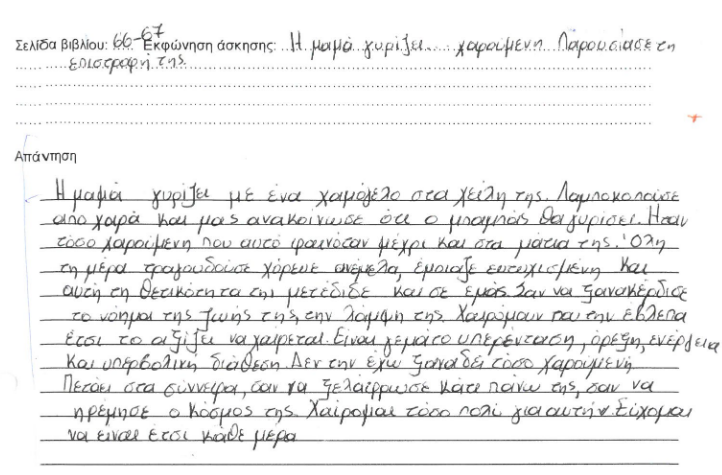 Σελίδα βιβλίου: 66-67 Εκφώνηση άσκησης: Η μαμά γυρίζει χαρούμενη Παρουσίασε τη
επιστροφή της.
Απάντηση
Η μαμά γυρίζει με ένα χαμόγελο στα χείλη της. Λαμποκοπούσε
από χαρά και μας ανακοίνωσε ότι ο μπαμπάς θα γυρίσει. Ήταν
τόσο χαρούμενη που αυτό φαινόταν μέχρι και στα μάτια της. Όλη
τη μέρα τραγουδούσε χόρευε ανέμελα, έμοιαζε ευτυχισμένη και
αυτή τη θετικότητα της μετέδιδε και σε εμάς. Σαν να ξανακέρδισε
το νόημα της ζωής της, την λάμψη της. Χαιρόμουν που την έβλεπα
έτσι το αξίζει να χαίρεται. Είναι γεμάτο υπερένταση, όρεξη, ενέργεια
και υπερβολική διάθεση. Δεν την έχω ξαναδεί τόσο χαρούμενη
Πετάει στα σύννεφα, σαν να ξελάφρωσε κάτι πάνω της, σαν να
ηρέμησε ο κόσμος της. Χαίρομαι τόσο πολύ για αυτήν. Εύχομαι
να είναι έτσι κάθε μέρα